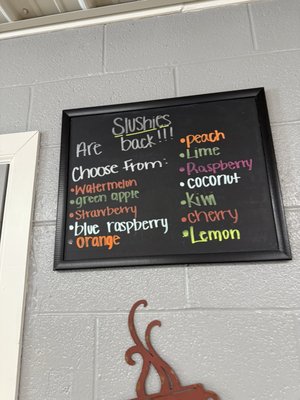 Slushies
Are back!!!
Choose From:
•Watermelon
•green apple
•strawberry
•blue raspberry
•orange
•peach
•Lime
•Raspberry
•coconut
•Kiwi
•cherry
•Lemon